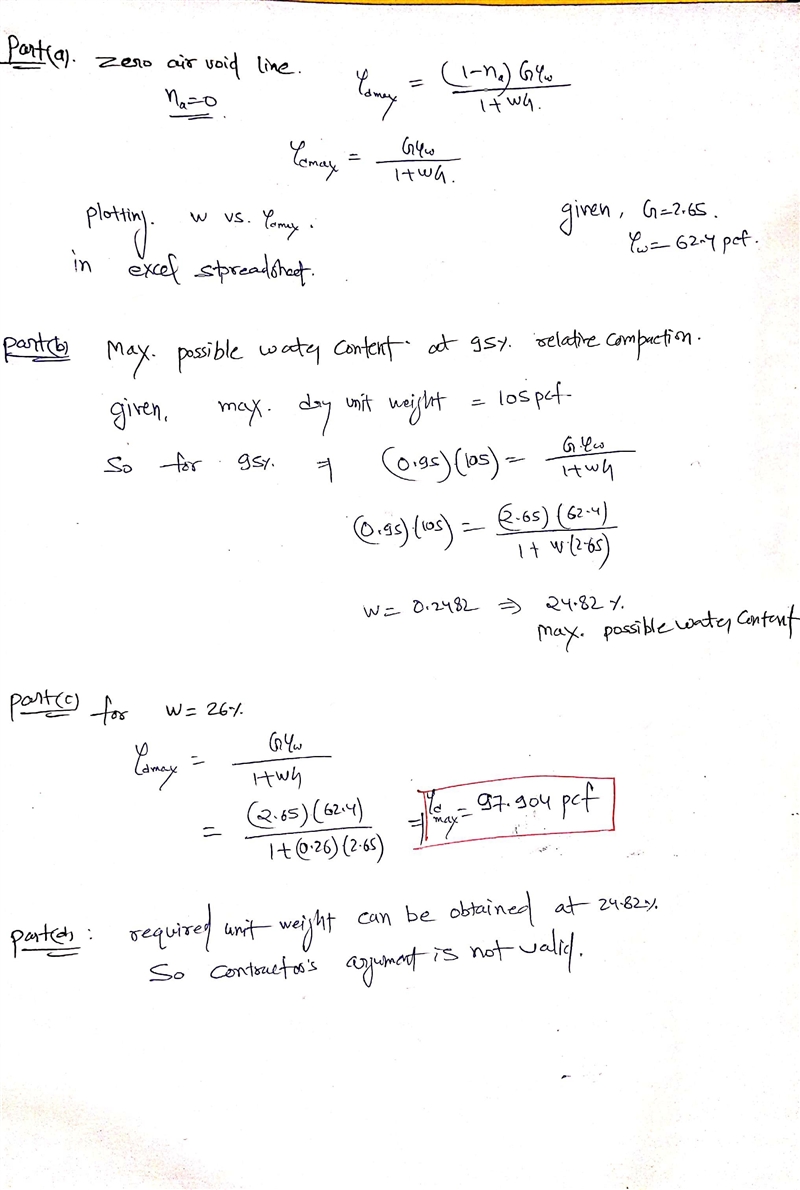 Part(a). Zero air void line. γdmax = (1-na) Gγw / 1+wG.
na=0
γdmax = Gγw / 1+wG.
plotting. w vs. γdmax. given, G=2.65.
γw= 62.4 pcf.
in excel spreadsheet.
Part(b) Max. possible water content at 95% relative compaction.
given, max. dry unit weight = 105 pcf.
So for 95% ⇒ (0.95)(105) = Gγw / 1+wG
(0.95)(105) = (2.65)(62.4) / 1+ w(2.65)
w= 0.2482 ⇒ 24.82 %
max. possible water content
Part(c) for w= 26%
γdmax = Gγw / 1+wG
= (2.65)(62.4) / 1+(0.26)(2.65) ⇒ γdmax = 97.904 pcf
Part(d): required unit weight can be obtained at 24.82%
So contractor's argument is not valid.